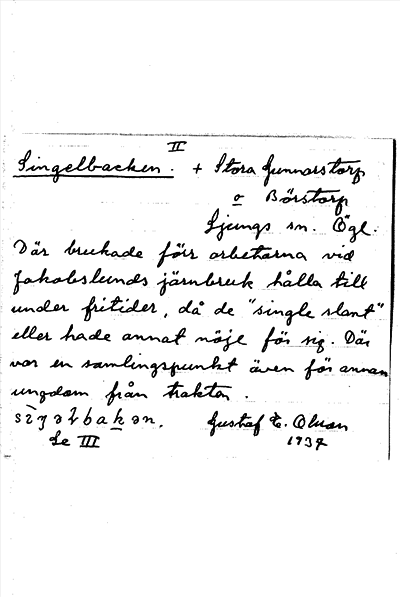 II
Singelbacken. + Stora Gunnarstorp
o Börstorp
Ljungs sn. Ögl.
Där brukade förr arbetarna vid
Jakobslunds järnbruk hålla till
under fritider, då de "single slant"
eller hade annat nöje för sig. Där
var en samlingspunkt även för annan
ungdom från trakten.
Gustaf E. Olsson
Se III 1934